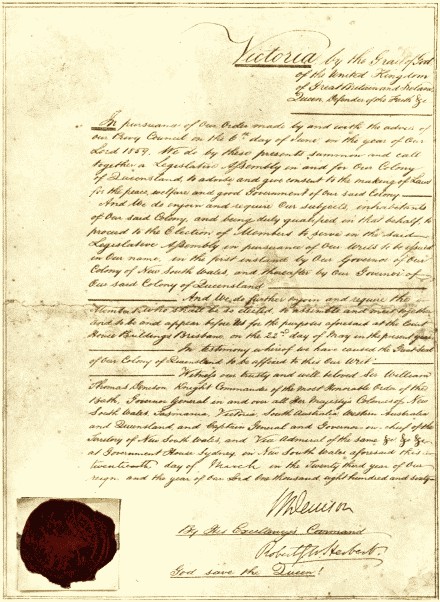 Victoria by the Grace of God
of the United Kingdom
of Great Britain and Ireland
Queen Defender of the Faith &c
In pursuance of Our Order made by and with the advice of
Our Privy Council on the 6th day of June in the year of Our
Lord 1859. We do by these presents summon and call
together a Legislative Assembly in and for Our Colony
of Queensland, to advise and give consent to the making of Laws
for the peace, welfare and good Government of Our said Colony
And We do enjoin and require Our subjects, inhabitants
of Our said Colony, and being duly qualified in that behalf to
proceed to the Election of Members to serve in the said
Legislative Assembly in pursuance of Our Writs to be issued
in Our name, in the first instance by Our Governor of Our
Colony of New South Wales, and thereafter by Our Governor of
Our said Colony of Queensland
And We do further enjoin and require the
Members, who shall be so elected, to assemble and meet together
and to be and appear before Us for the purposes aforesaid at the Court
House Buildings Brisbane, on the 22nd day of May in the present year
In testimony whereof We have caused the Great Seal
of Our Colony of Queensland to be affixed to this Our Writ
Witness our trusty and well beloved Sir William
Thomas Denison Knight Commander of the most Honorable Order of the
Bath, Governor General in and over all Her Majesty's Colonies of New
South Wales, Tasmania, Victoria, South Australia, Western Australia
and Queensland and Captain General and Governor in chief of the
Territory of New South Wales, and Vice Admiral of the same &c &c &c
at Government House Sydney, in New South Wales aforesaid this
twentieth day of March in the Twenty third year of Our
reign and the year of Our Lord One thousand eight hundred and sixty
W Denison
By His Excellency's Command
Robert G W Herbert
God save the Queen!